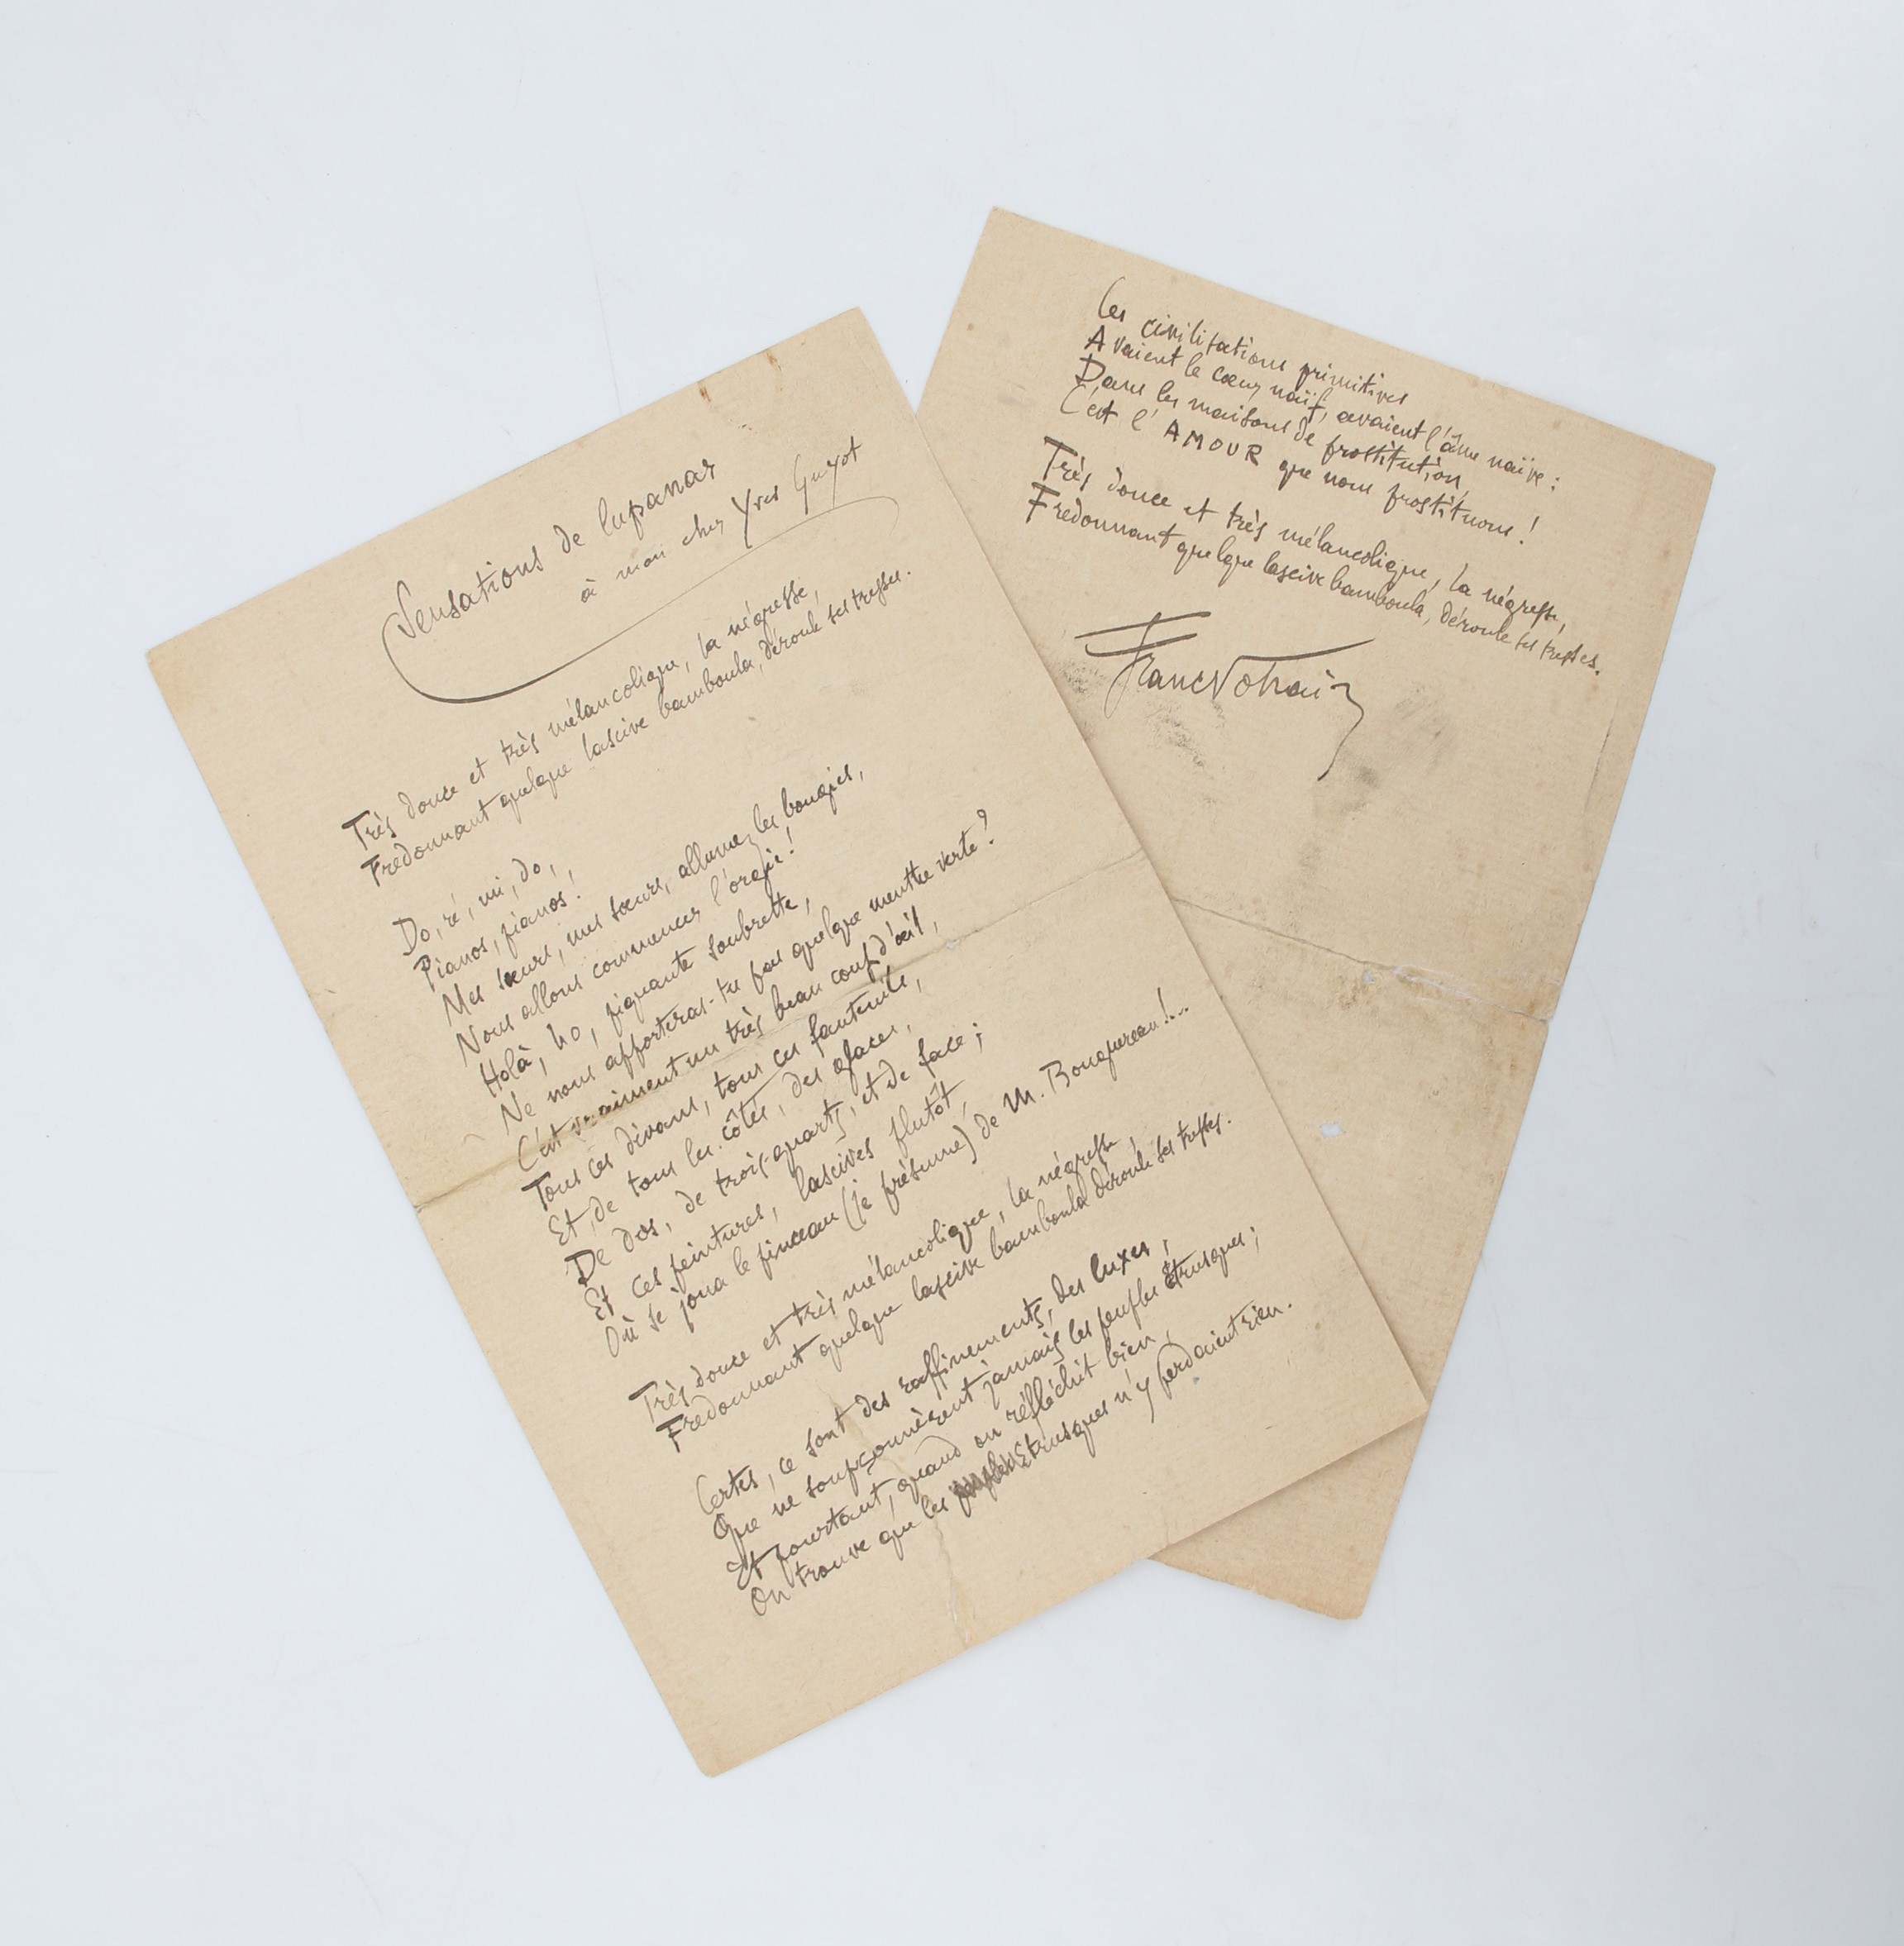 Sensations de lupanar
à mon cher Yves Guyot
Très douce et très mélancolique, la négresse,
Fredonnant quelque lascive bamboula, déroule ses tresses.
Do, ré, mi, do,
Pianos, pianos !
Mes sœurs, mes sœurs, allumez les bougies,
Nous allons commencer l'orgie !
Holà, ho, piquante soubrette,
Ne nous apporteras-tu pas quelque menthe verte ?
C'est vraiment un très beau coup d'œil,
Tous ces divans, tous ces fauteuils,
Et, de tous les côtés, des glaces,
De dos, de trois-quarts, et de face ;
Et ces peintures, lascives plutôt,
Où se joua le pinceau (je présume) de M. Bouguereau !...
Très douce et très mélancolique, la négresse,
Fredonnant quelque lascive bamboula déroule ses tresses.
Certes, ce sont des raffinements, des luxes,
Que ne soupçonnèrent jamais les peuples Étrusques ;
Et pourtant, quand on réfléchit bien,
On trouve que les Étrusques n'y perdaient rien.
Ces civilisations primitives
Avaient le cœur naïf, avaient l'âme naïve :
Dans les maisons de prostitution,
C'est l'AMOUR que nous prostituons !
Très douce et très mélancolique, la négresse,
Fredonnant quelque lascive bamboula, déroule ses tresses.
Franc Nohain